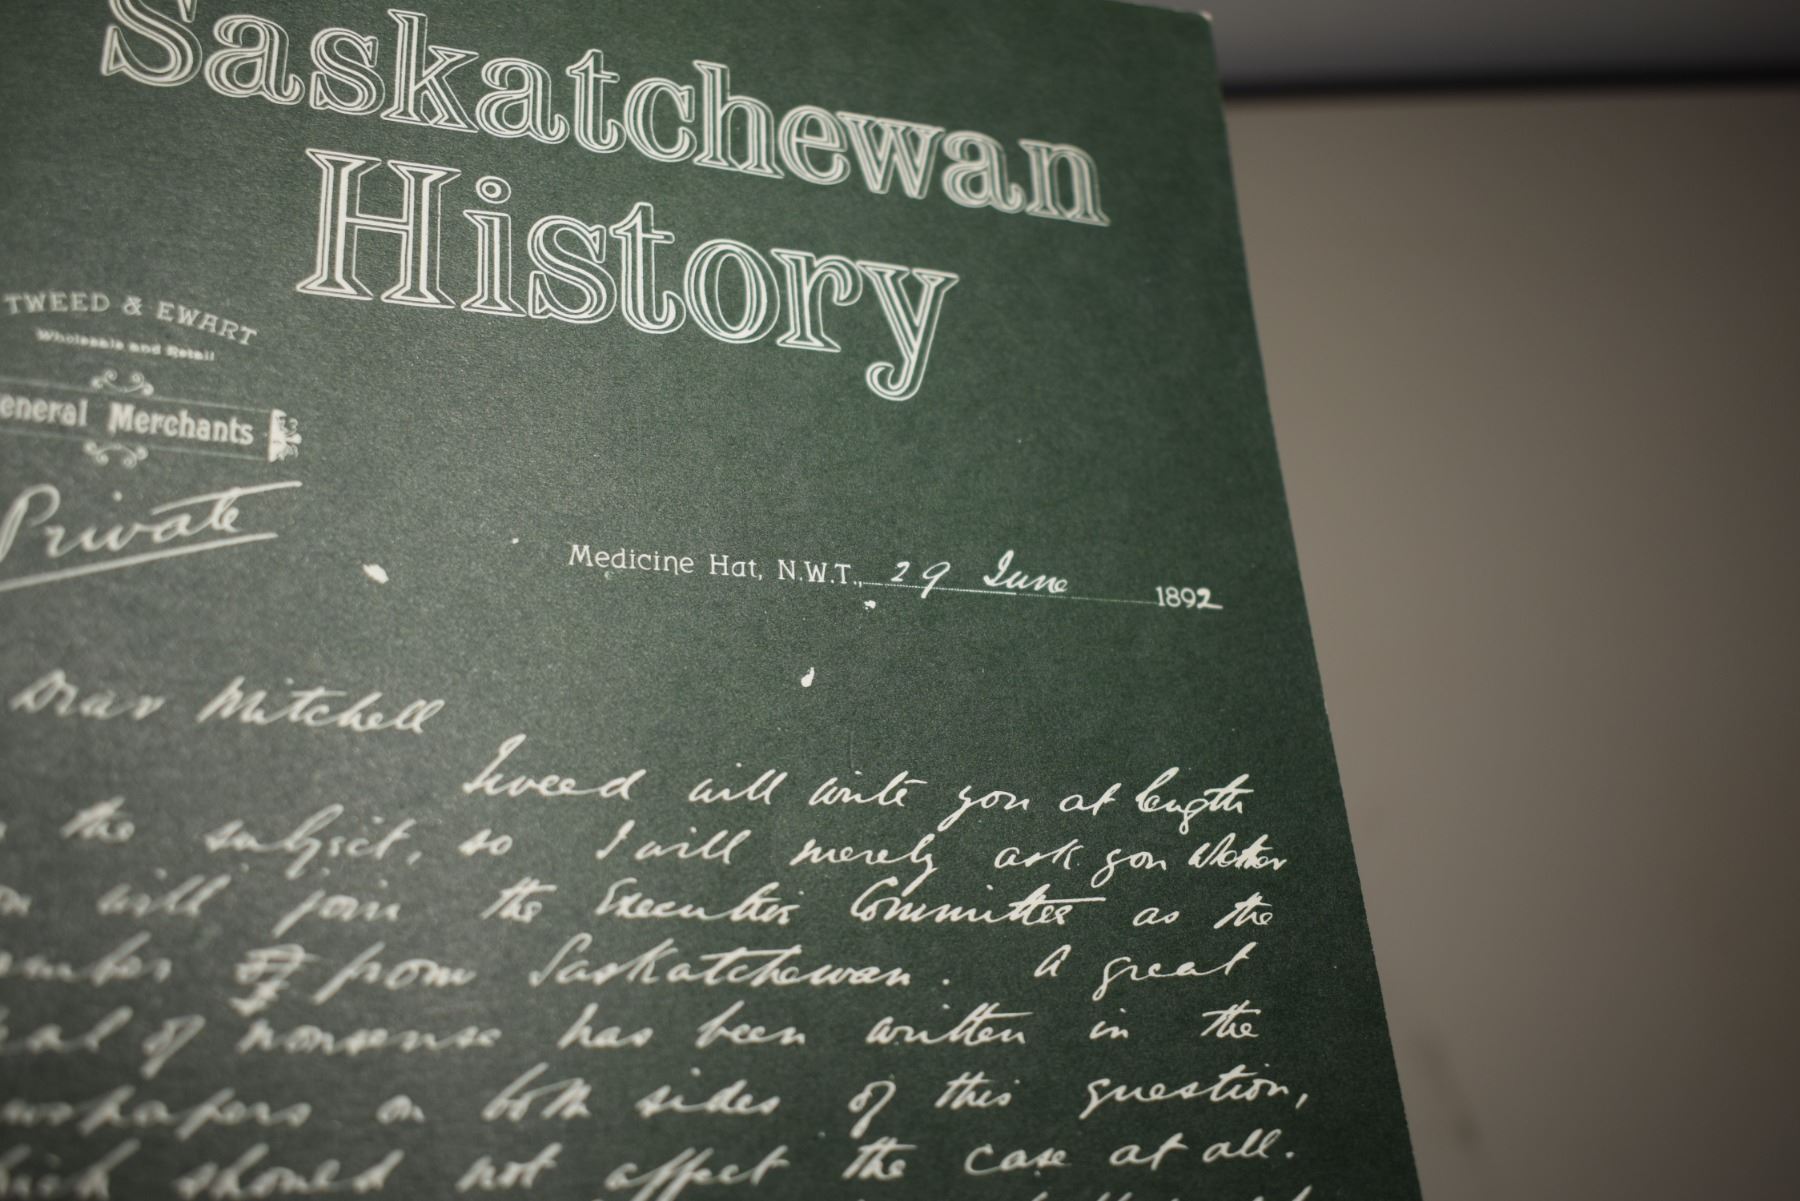 Saskatchewan
History
TWEED & EWART
Wholesale and Retail
eneral Merchants
Private
Medicine Hat, N.W.T., 29 June 1892
Dear Mitchell
Tweed will write you at length
the subject, so I will merely ask you whether
will join the Executive Committee as the
ember from Saskatchewan. A great
eal of nonsense has been written in the
wspapers on both sides of this question,
hich should not affect the case at all.